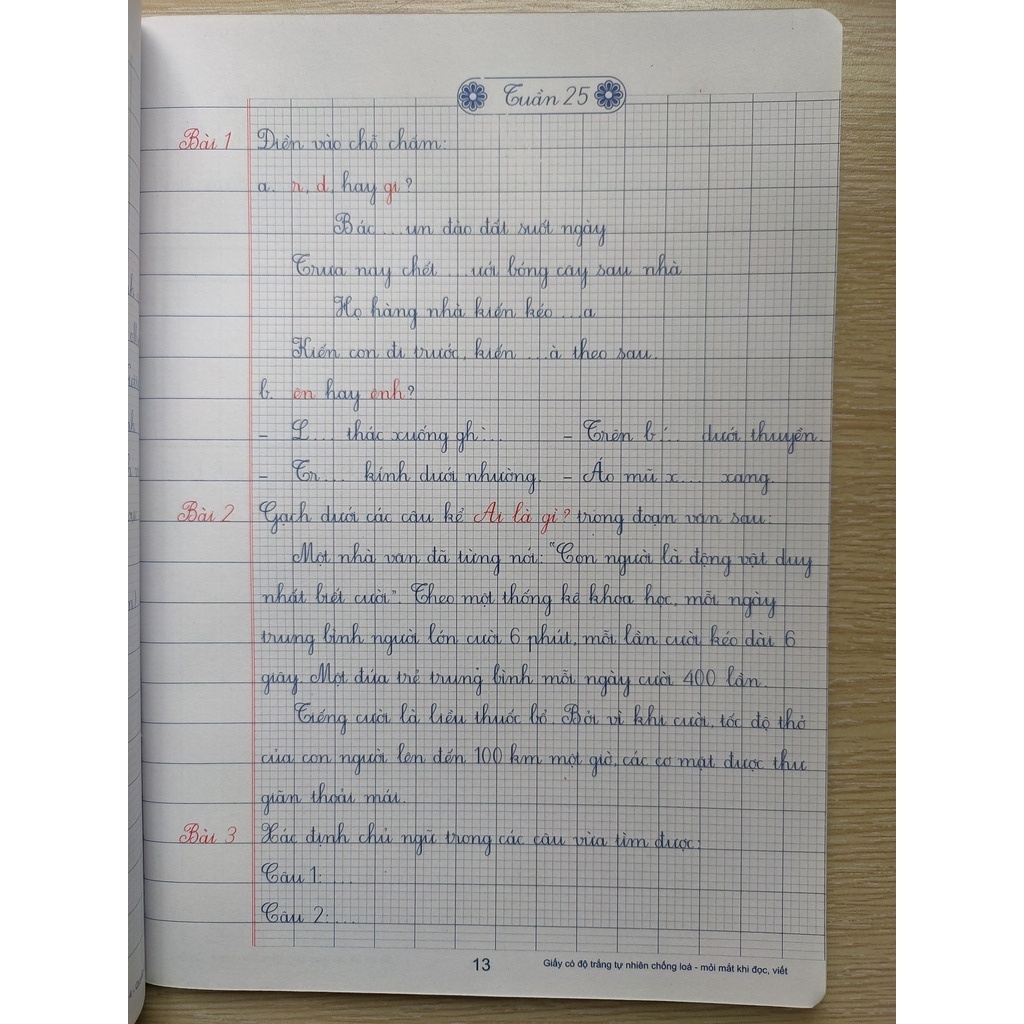 Tuần 25
Bài 1 Điền vào chỗ chấm:
a. r, d, hay gi?
Bác ... un đào đất suốt ngày
Trưa nay chết ... ưới bóng cây sau nhà
Họ hàng nhà kiến kéo ... a
Kiến con đi trước, kiến ... à theo sau.
b. ên hay ênh?
- L ... thác xuống ghì ... - Trên b ́... dưới thuyền.
- Tr ... kính dưới nhường. - Áo mũ x ... xang.
Bài 2 Gạch dưới các câu kể Ai là gì? trong đoạn văn sau:
Một nhà văn đã từng nói: "Con người là động vật duy
nhất biết cười". Theo một thống kê khoa học, mỗi ngày
trung bình người lớn cười 6 phút, mỗi lần cười kéo dài 6
giây. Một đứa trẻ trung bình mỗi ngày cười 400 lần.
Tiếng cười là liều thuốc bổ. Bởi vì khi cười, tốc độ thở
của con người lên đến 100 km một giờ, các cơ mặt được thư
giãn thoải mái.
Bài 3 Xác định chủ ngữ trong các câu vừa tìm được:
Câu 1: ...
Câu 2: ...
13 Giấy có độ trắng tự nhiên chống loá - mỏi mắt khi đọc, viết